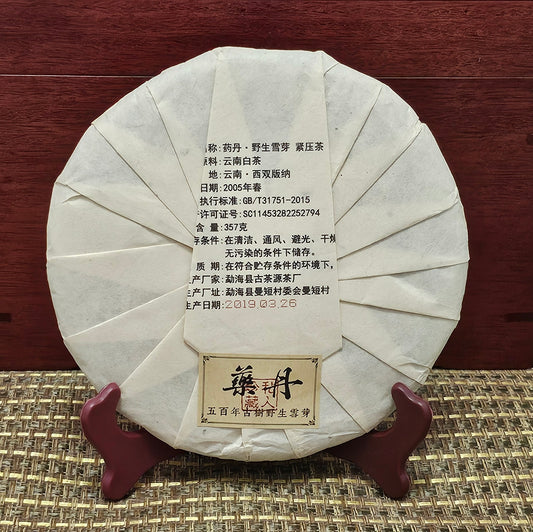 名称:药丹·野生雪芽 紧压茶
原料:云南白茶
地:云南·西双版纳
日期:2005年春
执行标准:GB/T31751-2015
许可证号:SC11453282252794
含 量:357克
存条件:在清洁、通风、避光、干燥
无污染的条件下储存。
质 期:在符合贮存条件的环境下,
生产厂家:勐海县古茶源茶厂
生产厂址:勐海县曼短村委会曼短村
生产日期:2019.03.26
藥丹
五百年古樹野生雪芽